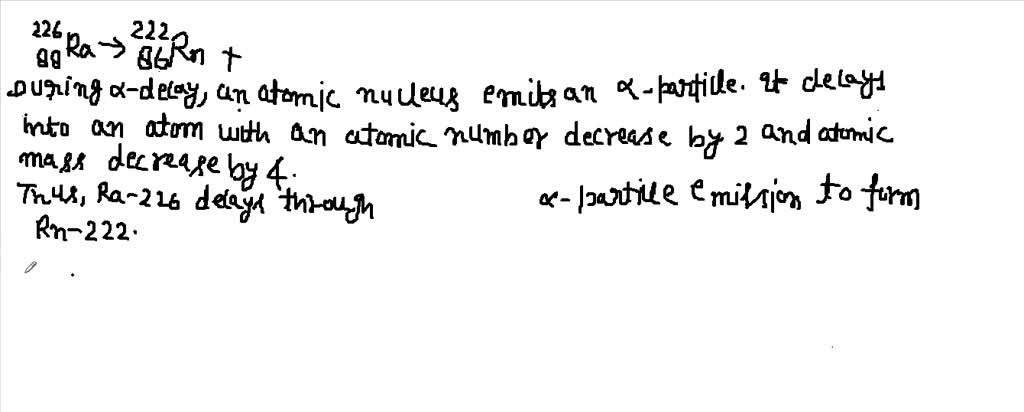 ²²⁶₈₈Ra → ²²²₈₆Rn +
During α-decay, an atomic nucleus emits an α-particle. It decays
into an atom with an atomic number decrease by 2 and atomic
mass decrease by 4.
Thus, Ra-226 decays through α-particle emission to form
Rn-222.